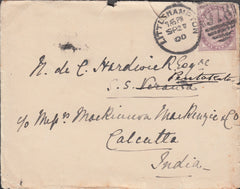 LITTLEHAMPTON
SP 27
00
N. de C. Hardwick Esqre
S.S. Veronia
c/o Messrs Mackinnon Mackenzie & Co
Calcutta
India.